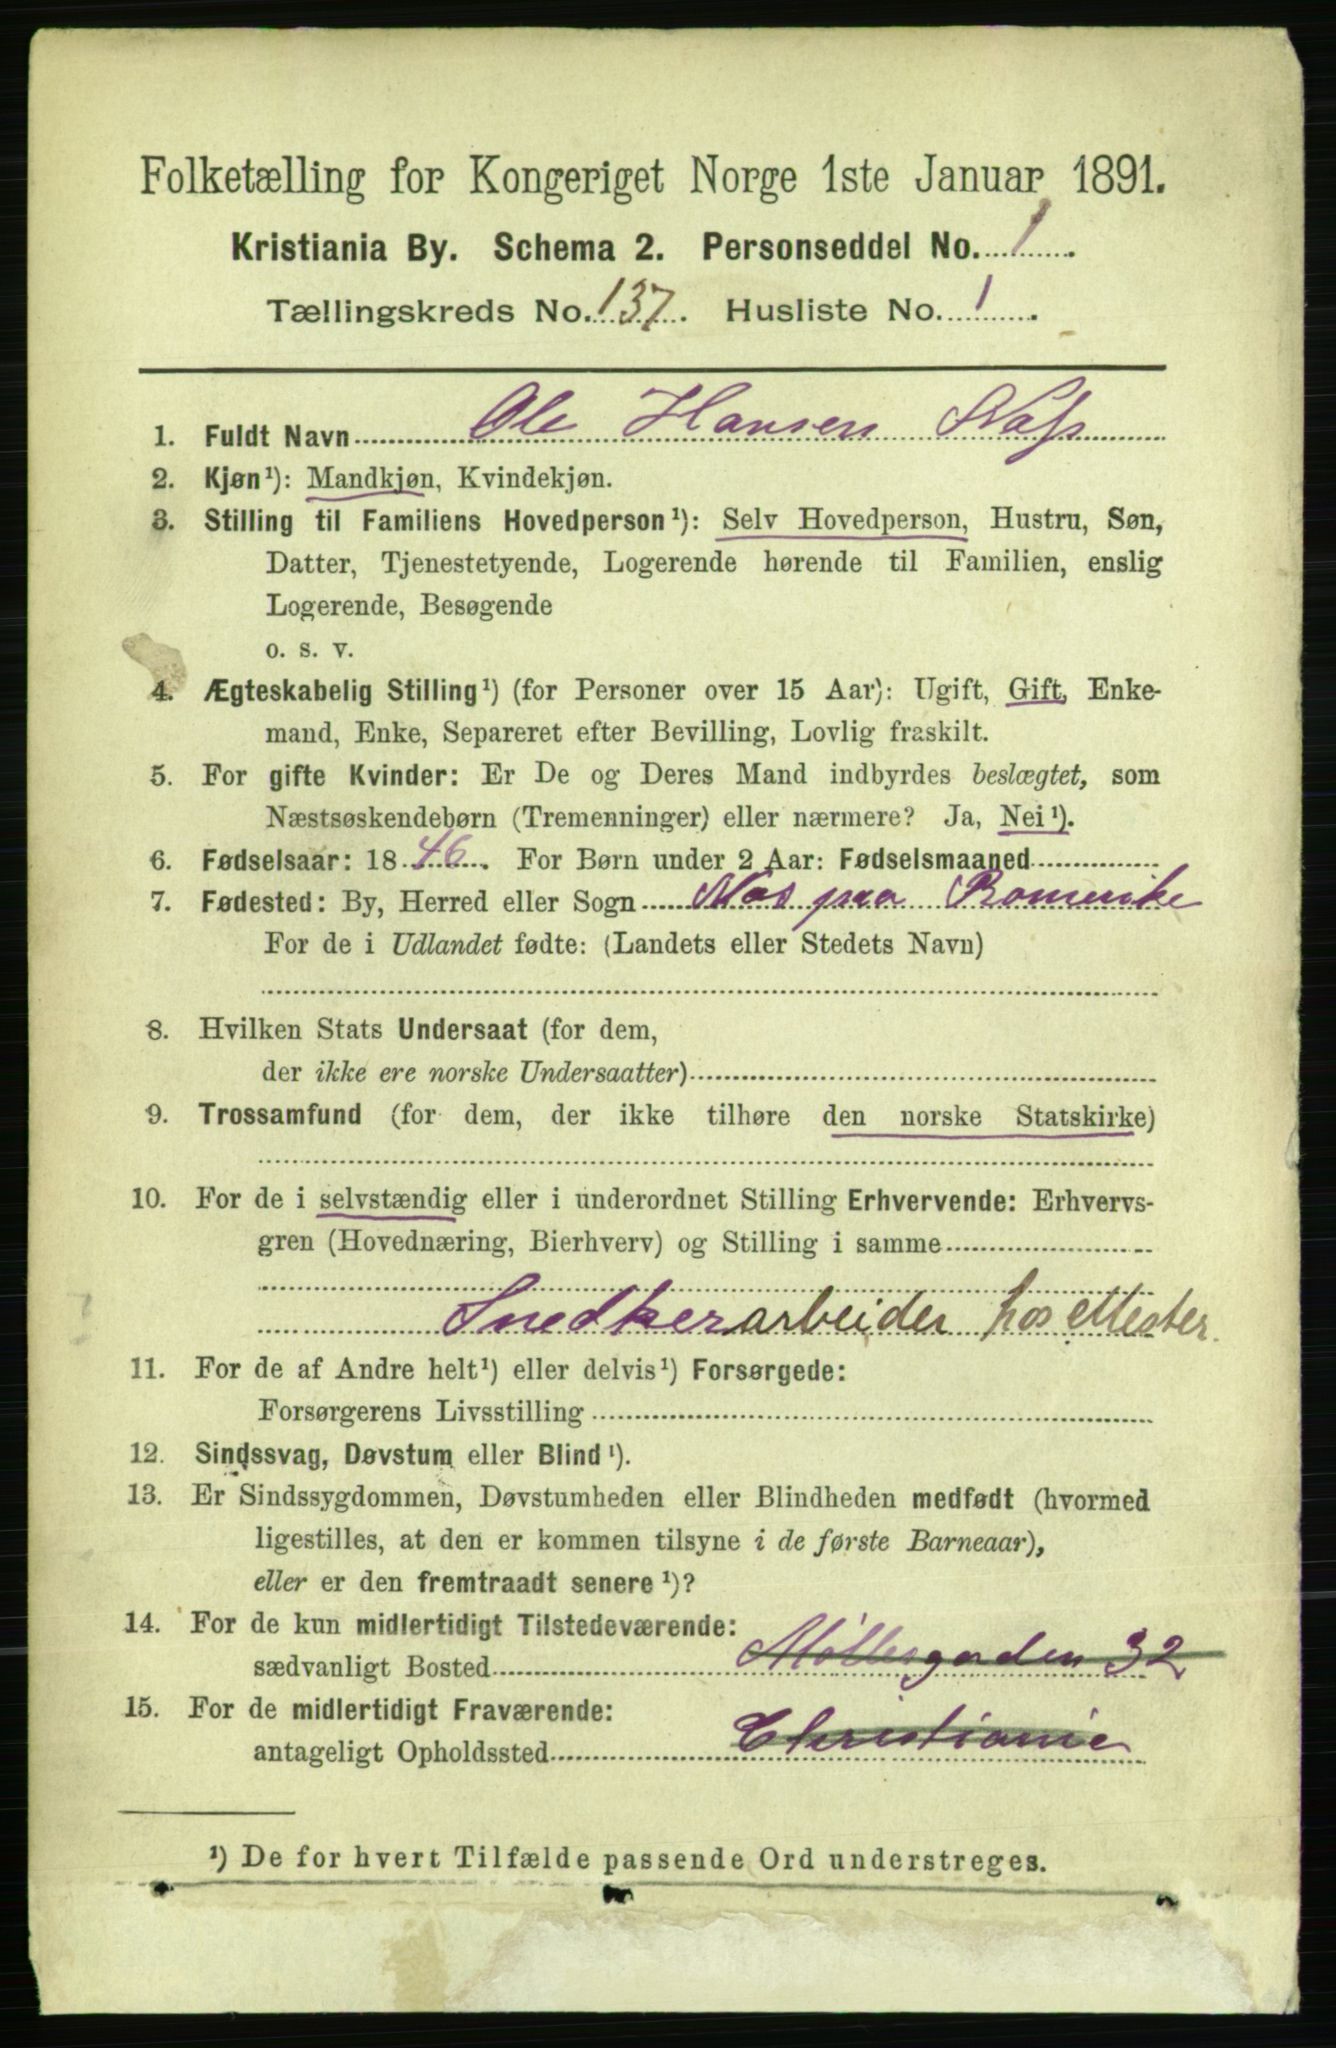 Folketælling for Kongeriget Norge 1ste Januar 1891.
Kristiania By. Schema 2. Personseddel No. 1.
Tællingskreds No. 137. Husliste No. 1.
1. Fuldt Navn Ole Hansen Næss
2. Kjøn¹): Mandkjøn, Kvindekjøn.
3. Stilling til Familiens Hovedperson¹): Selv Hovedperson, Hustru, Søn,
Datter, Tjenestetyende, Logerende hørende til Familien, enslig
Logerende, Besøgende
o. s. v.
4. Ægteskabelig Stilling¹) (for Personer over 15 Aar): Ugift, Gift, Enke-
mand, Enke, Separeret efter Bevilling, Lovlig fraskilt.
5. For gifte Kvinder: Er De og Deres Mand indbyrdes beslægtet, som
Næstsøskendebørn (Tremenninger) eller nærmere? Ja, Nei¹).
6. Fødselsaar: 1846. For Børn under 2 Aar: Fødselsmaaned
7. Fødested: By, Herred eller Sogn Næs paa Romerike
For de i Udlandet fødte: (Landets eller Stedets Navn)
8. Hvilken Stats Undersaat (for dem,
der ikke ere norske Undersaatter)
9. Trossamfund (for dem, der ikke tilhøre den norske Statskirke)
10. For de i selvstændig eller i underordnet Stilling Erhvervende: Erhvervs-
gren (Hovednæring, Bierhverv) og Stilling i samme
Snedkerarbeider hos Mester.
11. For de af Andre helt¹) eller delvis¹) Forsørgede:
Forsørgerens Livsstilling
12. Sindssvag, Døvstum eller Blind¹).
13. Er Sindssygdommen, Døvstumheden eller Blindheden medfødt (hvormed
ligestilles, at den er kommen tilsyne i de første Barneaar),
eller er den fremtraadt senere¹)?
14. For de kun midlertidigt Tilstedeværende:
sædvanligt Bosted Møllergaden 32
15. For de midlertidigt Fraværende:
antageligt Opholdssted Christiania
¹) De for hvert Tilfælde passende Ord understreges.